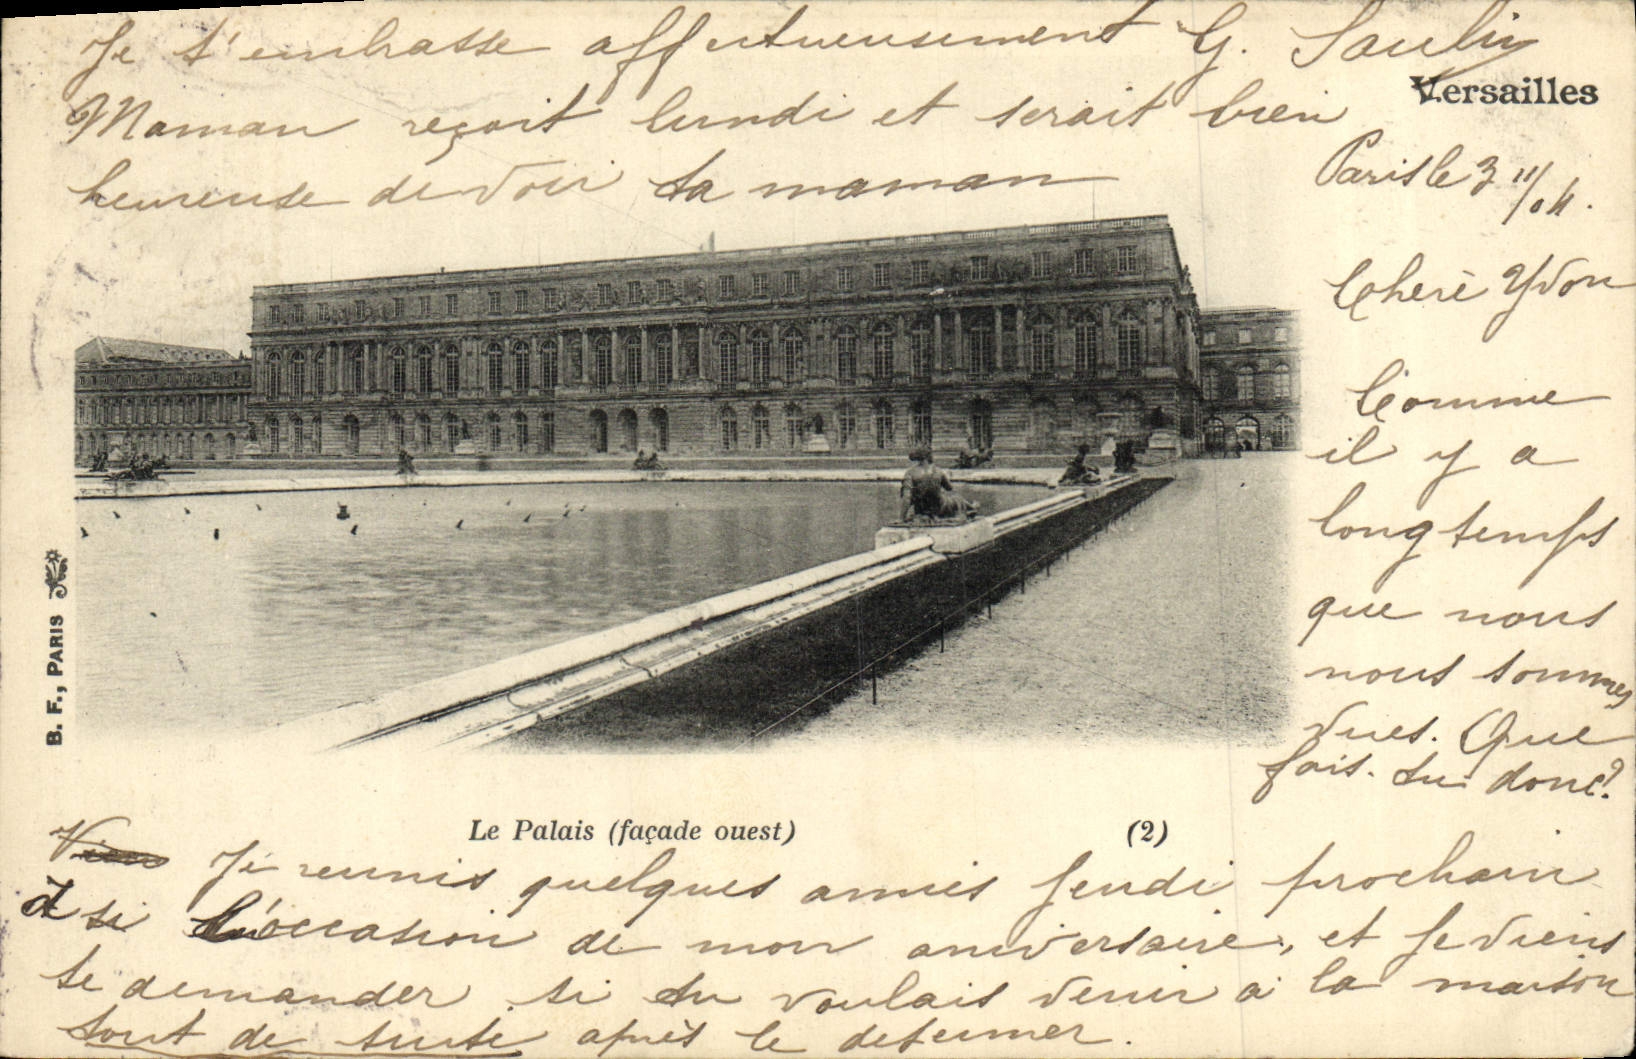 Je t'embrasse affectueusement G.
Maman reçoit lundi et serait bien
heureuse de voir ta maman
Versailles
Paris le 3 11/04.
Chère Yvon
Comme
il y a
longtemps
que nous
nous sommes
vues. Que
fais-tu donc?
B. F., PARIS
Le Palais (façade ouest) (2)
Je réunis quelques amies Jeudi prochain
si l'occasion de mon aniversaire, et je viens
te demander si tu voulais venir à la maison
tout de suite après le déjeuner.